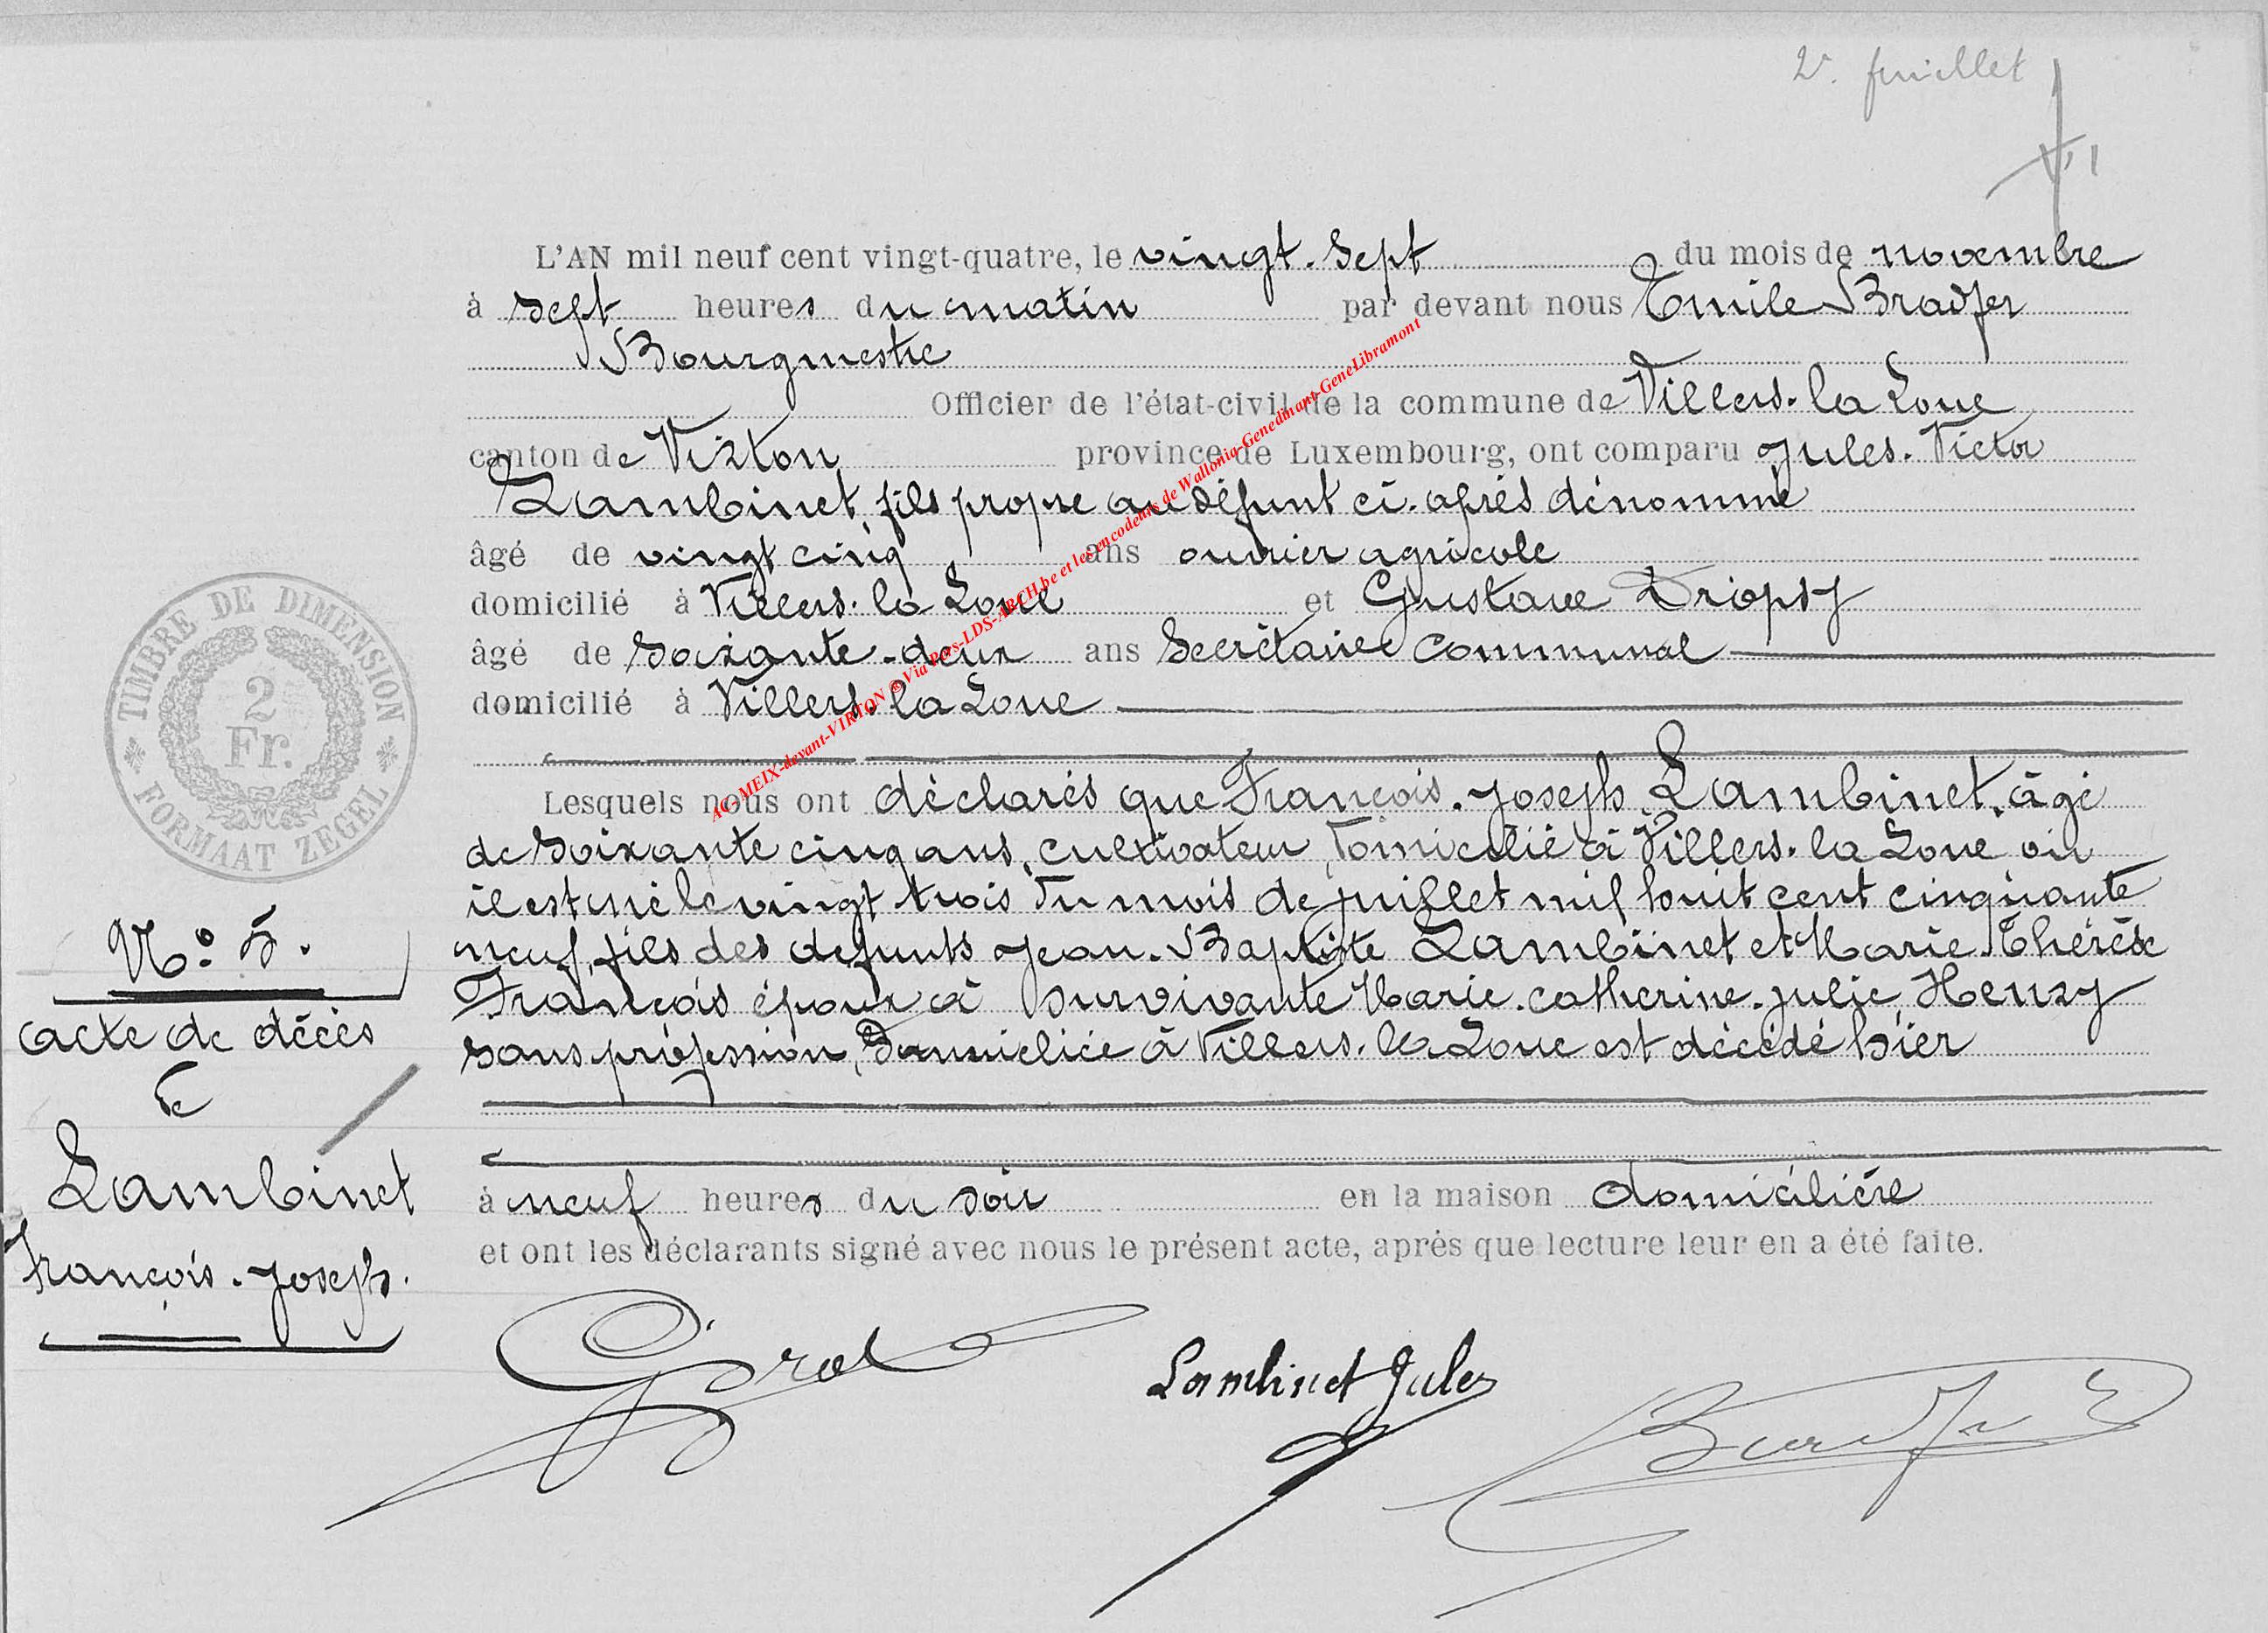 2e feuillet
L'AN mil neuf cent vingt-quatre, le vingt-sept du mois de novembre
à sept heures du matin par devant nous Emile Bradfer
Bourgmestre
Officier de l'état-civil de la commune de Villers-la-Loue
canton de Virton province de Luxembourg, ont comparu Jules-Victor
Lambinet, fils propre au défunt ci-après dénommé
âgé de vingt cinq ans ouvrier agricole
domicilié à Villers-la-Loue et Gustave Dropsy
âgé de soixante-deux ans Secrétaire communal
domicilié à Villers-la-Loue
Lesquels nous ont déclarés que François-Joseph Lambinet, âgé
de soixante cinq ans, cultivateur, domicilié à Villers-la-Loue où
il est né le vingt trois du mois de juillet mil huit cent cinquante
neuf, fils des défunts Jean-Baptiste Lambinet et Marie-Thérèse
François époux à survivante Marie-Catherine-Julie Henry
sans profession, domiciliée à Villers-la-Loue est décédé hier
à neuf heures du soir en la maison domicilière
et ont les déclarants signé avec nous le présent acte, après que lecture leur en a été faite.
TIMBRE DE DIMENSION
2
Fr.
FORMAAT ZEGEL
No 5.
acte de décès
de
Lambinet
François-Joseph.
Lambinet Jules
Bradfer
AC-MEIX-devant-VIRTON @ Via Pers-LDS-ARCH.be et les encodeurs de Wallonia-Genedinant-GeneLibramont